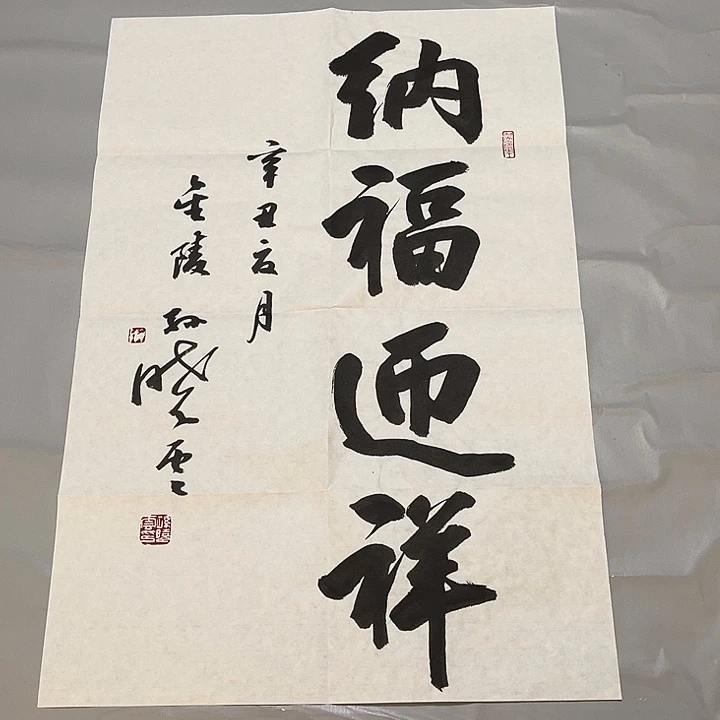 纳福迎祥
辛丑夏月
金陵孙晓雲